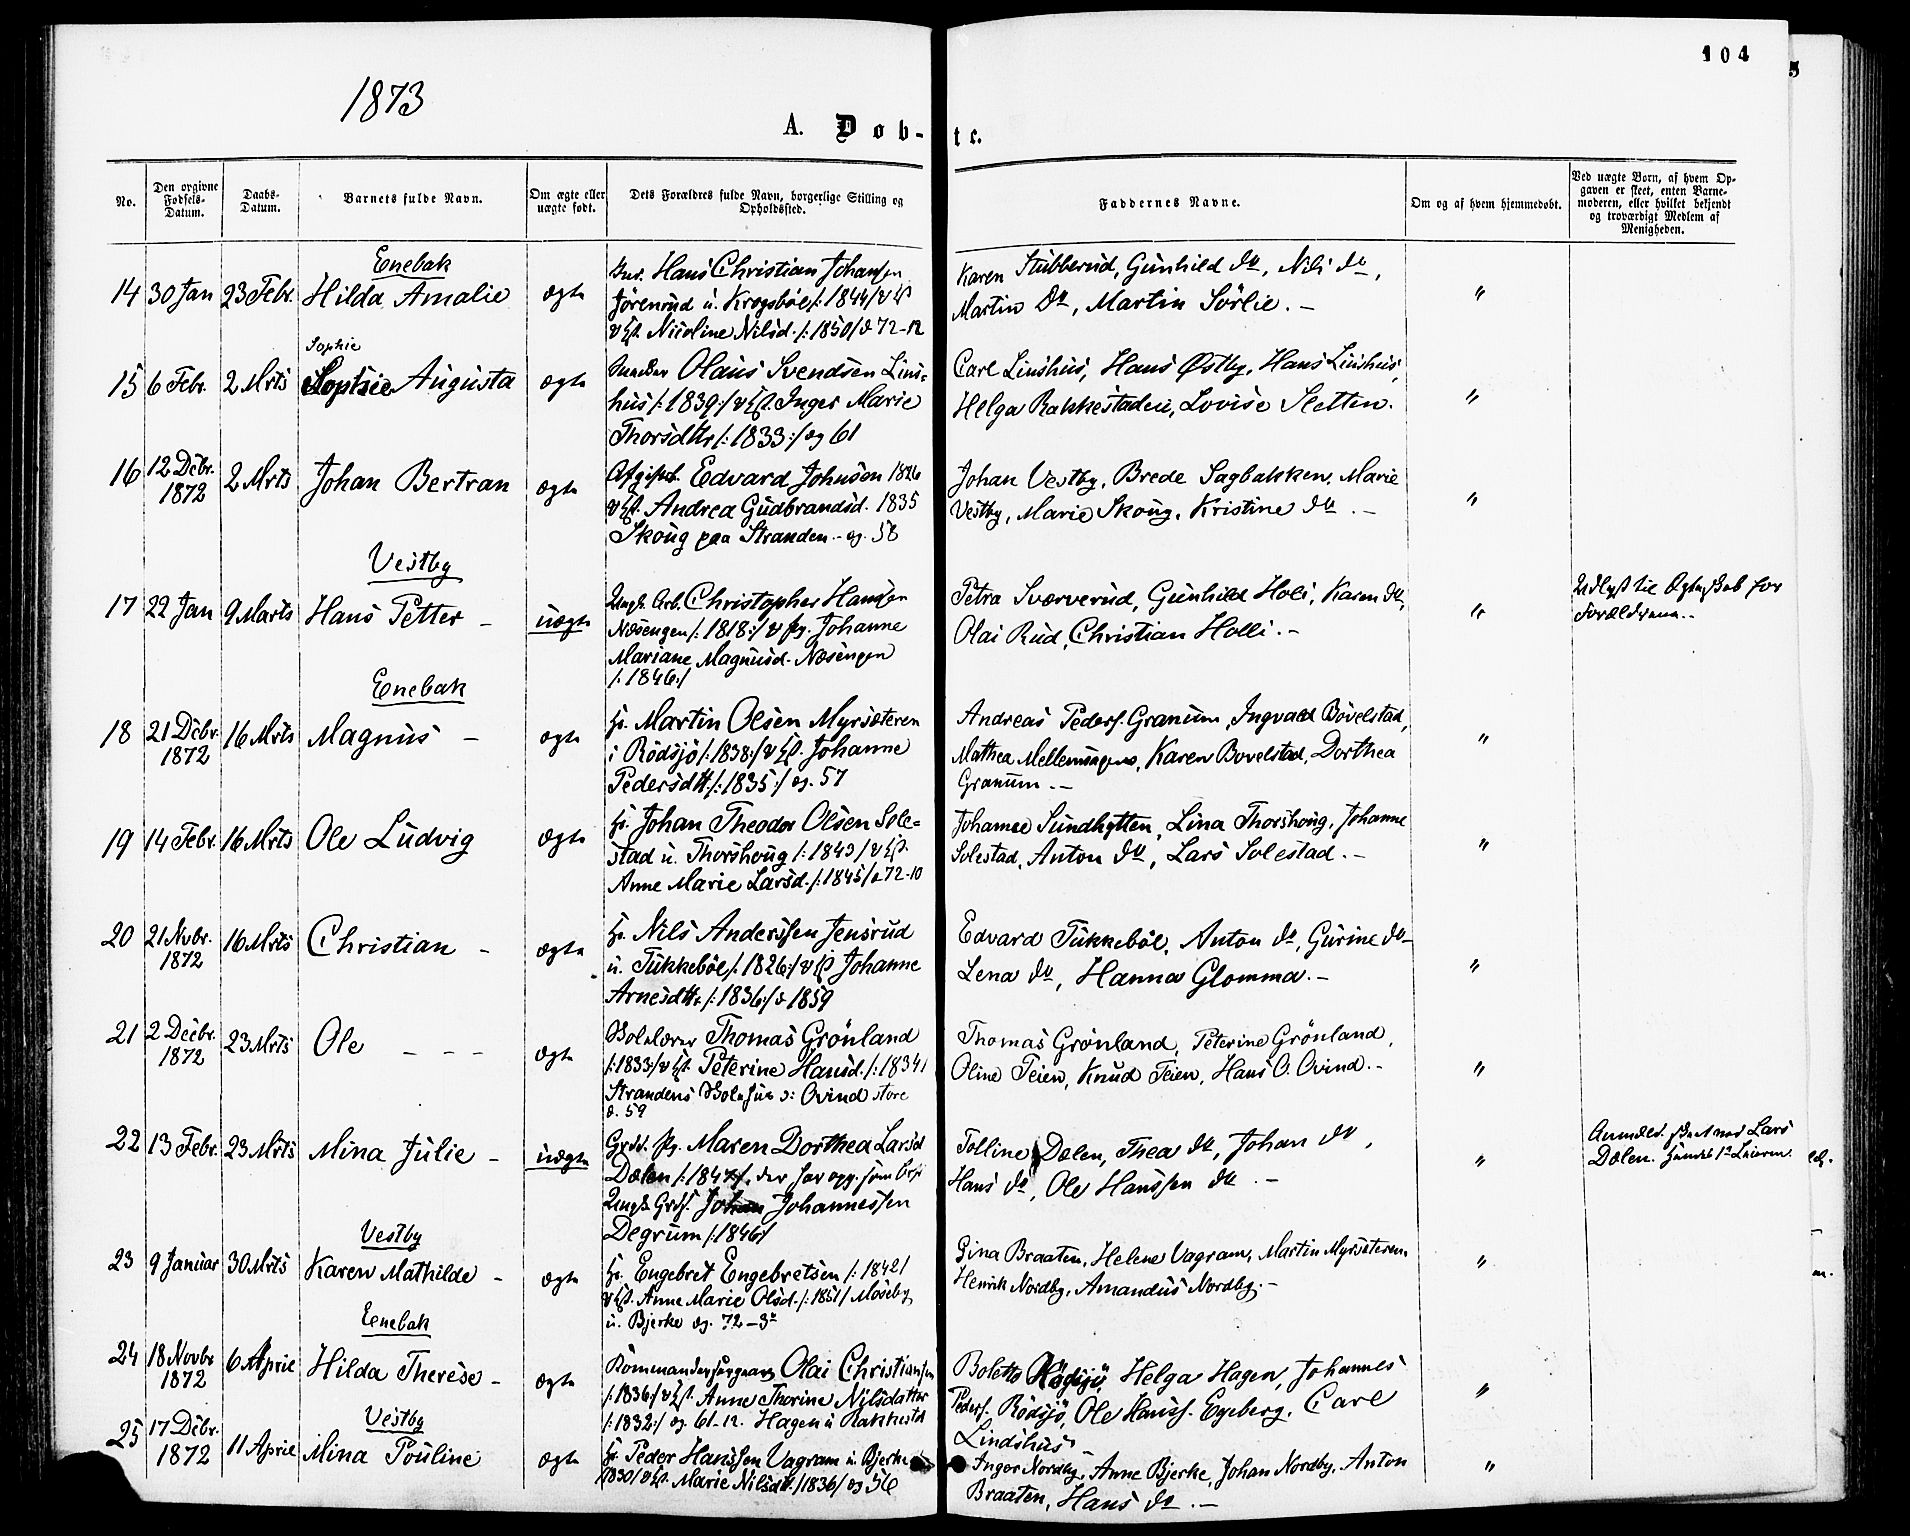 104
1873
A. Døb-
te.
No.
Den opgivne Fødsels-Datum.
Daabs-Datum.
Barnets fulde Navn.
Om ægte eller uægte født.
Dets Forældres fulde Navn, borgerlige Stilling og Opholdssted.
Faddernes Navne.
Om og af hvem hjemmedøbt.
Ved uægte Born, af hvem Opgaven er skeet, enten Barnemoderen, eller hvilket bekjendt og troværdigt Medlem af Menigheden.
Enebak
14 30 Jan 23 Febr. Hilda Amalie ægte
Hans Christian Johansen
Jørenrud u. Krogsbøl /: 1844/
Nicoline Nilsd. /: 1850/ 72-12
Karen Stubberud, Gunhild do, Nils do,
Martin do, Martin Sörlie. –
"
Sophie
15 6 Febr. 2 Mrts Sophie Augusta ægte
Olaus Svendsen Lins=
hus /: 1839:/ Inger Marie
Thorsdttr /: 1833:/ og 61
Carl Linshus, Hans Østby, Hans Linshus,
Helga Rakkestadeie, Lovise Sletten.
"
16 12 Debr. 1872 2 Mrts Johan Bertran ægte
Edvard Johnsen 1826
Andrea Gudbrandsd. 1835
Skoug paa Stranden - og. 58
Johan Vestby, Brede Sagbakken, Marie
Vestby, Marie Skoug, Kristine do. –
"
Vestby
17 22 Jan 9 Marts Hans Petter – uægte
Ungk. Arb. Christopher Hansen
Næsengen /: 1818:/ pg. Johanne
Mariane Magnusd. Næsengen
/: 1846:/
Petra Sværverud, Gunhild Holi, Karen do,
Olai Rud, Christian Holli. –
"
Udlyst til Ægteskab for
Forældrene. –
Enebak
18 21 Debr. 1872 16 Mrts Magnus – ægte
Martin Olsen Myrsæteren
i Rödsjö /: 1838:/ Johanne
Pedersdtt. /: 1835:/ og. 57
Andreas Peders. Granum, Ingvald Bövelstad,
Mathea, Karen Bovelstad, Dorthea
Granum. –
"
19 14 Febr. 16 Mrts Ole Ludvig ægte
Johan Theodor Olsen Sole=
stad u. Thorshoug /: 1843/
Anne Marie Larsd. /: 1845/ 72-10
Johanne Sundhytten, Lina Thorshoug, Johanne
Solestad, Anton do, Lars Solestad. –
"
20 21 Nvbr. 1872 16 Mrts Christian – ægte
Nils Anderssen Jensrud
u. Tukkebøl /: 1826:/ Johanne
Arnesdttr /: 1836:/ 1859
Edvard Tukkeböl, Anton do, Gurine do –
Lena do, Hanna Glomma. –
"
21 2 Decbr. 1872 23 Mrts Ole – – – ægte
Thomas Grönland
/: 1833:/ Peterine Hansd. /: 1834/
Strandens Ovind store
59
Thomas Grönland, Peterine Grönland,
Oline Teien, Knud Teien, Hans O. Ovind. –
"
22 13 Febr. 23 Mrts Mina Julie – uægte
Maren Dorthea Larsd
Dælen /: 1847/, der har opg. som
Ungk. Johannessen
Degrum /: 1846/
Tolline Dælen, Thea do, Johan do,
Hans do, Ole Hanssen do. –
"
Lars
Dælen.
Vestby
23 9 Januar 30 Mrts Karen Mathilde – ægte
Engebret Engebretsen /: 1842/
Anne Marie Olsd. /: 1851/ Moseby
u. Bjerke og. 72-3
Gina Braaten, Helene Vagram, Martin Myrsæteren
Henrik Nordby, Amandus Nordby. –
"
Enebak
24 18 Novbr 1872 6 April Hilda Therese – ægte
Olai Christiansen
/: 1836:/ Anne Thorine Nilsdatter
/: 1832:/ og 61-12. Hagen u Rakkestd
Bolette Rödsjö, Helga Hagen, Johannes
Peders. Rödsjö, Ole Hanss. Egeberg, Carl
Lindshus –
"
Vestby
25 17 Debr. 1872 11 April Mina Pouline ægte
Peder Hanssen Vagram u. Bjerke
1830/ Marie Nilsdtt. /1836/ og 56
Inger Nordby, Anne Bjerke, Johan Nordby, Anton
Braaten, Hans do. –
"